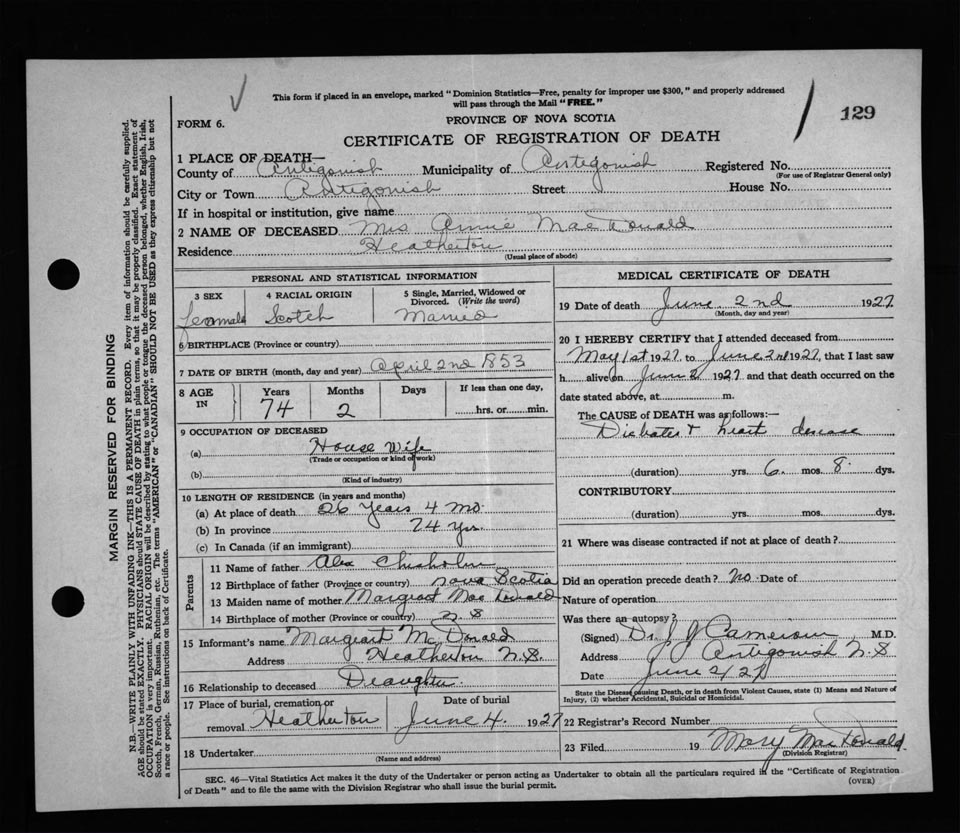 This form if placed in an envelope, marked "Dominion Statistics—Free, penalty for improper use $300," and properly addressed
will pass through the Mail "FREE."
129
FORM 6.
PROVINCE OF NOVA SCOTIA
CERTIFICATE OF REGISTRATION OF DEATH
1 PLACE OF DEATH—
County of Antigonish Municipality of Antigonish Registered No.
(For use of Registrar General only)
City or Town Antigonish Street House No.
If in hospital or institution, give name
2 NAME OF DECEASED Mrs Annie MacDonald
Residence Heatherton
(Usual place of abode)
PERSONAL AND STATISTICAL INFORMATION
3 SEX 4 RACIAL ORIGIN 5 Single, Married, Widowed or
Divorced. (Write the word)
Feamale Scotch Married
6 BIRTHPLACE (Province or country)
7 DATE OF BIRTH (month, day and year) April 2nd 1853
8 AGE IN Years Months Days If less than one day,
74 2 hrs. or min.
9 OCCUPATION OF DECEASED
(a) House Wife
(Trade or occupation or kind of work)
(b)
(Kind of industry)
10 LENGTH OF RESIDENCE (in years and months)
(a) At place of death 26 Years 4 Mo.
(b) In province 74 Yrs.
(c) In Canada (if an immigrant)
Parents
11 Name of father Alex Chisholm
12 Birthplace of father (Province or country) Nova Scotia
13 Maiden name of mother Margraet MacDonald
14 Birthplace of mother (Province or country) N. S
15 Informant's name Margraet McDonald
Address Heatherton N.S.
16 Relationship to deceased Deaughter
17 Place of burial, cremation or Date of burial
removal Heatherton June 4. 1927
18 Undertaker
(Name and address)
MEDICAL CERTIFICATE OF DEATH
19 Date of death June 2nd 1927
(Month, day and year)
20 I HEREBY CERTIFY that I attended deceased from
May 1st 1927 to June 2nd 1927, that I last saw
h alive on June 2 1927 and that death occurred on the
date stated above, at m.
The CAUSE of DEATH was as follows:—
Diabates & heart desease
(duration) yrs. 6. mos. 8. dys.
CONTRIBUTORY
(duration) yrs. mos. dys.
21 Where was disease contracted if not at place of death?
Did an operation precede death? No. Date of
Nature of operation
Was there an autopsy?
(Signed) Dr. J J Cameron M.D.
Address Antigonish N.S
Date June 2/27
State the Disease causing Death, or in death from Violent Causes, state (1) Means and Nature of
Injury, (2) whether Accidental, Suicidal or Homicidal.
22 Registrar's Record Number
23 Filed 19 Mary MacDonald.
(Division Registrar)
SEC. 46—Vital Statistics Act makes it the duty of the Undertaker or person acting as Undertaker to obtain all the particulars required in the "Certificate of Registration
of Death" and to file the same with the Division Registrar who shall issue the burial permit.
(OVER)
MARGIN RESERVED FOR BINDING
N.B.—WRITE PLAINLY WITH UNFADING INK—THIS IS A PERMANENT RECORD. Every item of information should be carefully supplied.
AGE should be stated EXACTLY. PHYSICIANS should STATE CAUSE OF DEATH in plain terms, so that it may be properly classified. Exact statement of
OCCUPATION is very important. RACIAL ORIGIN will be described by stating to what people or tongue the deceased person belonged, whether English, Irish,
Scotch, French, German, Russian, Ruthenian, etc. The terms "AMERICAN" or "CANADIAN" SHOULD NOT BE USED as they express citizenship but not
a race or people. See instructions on back of Certificate.